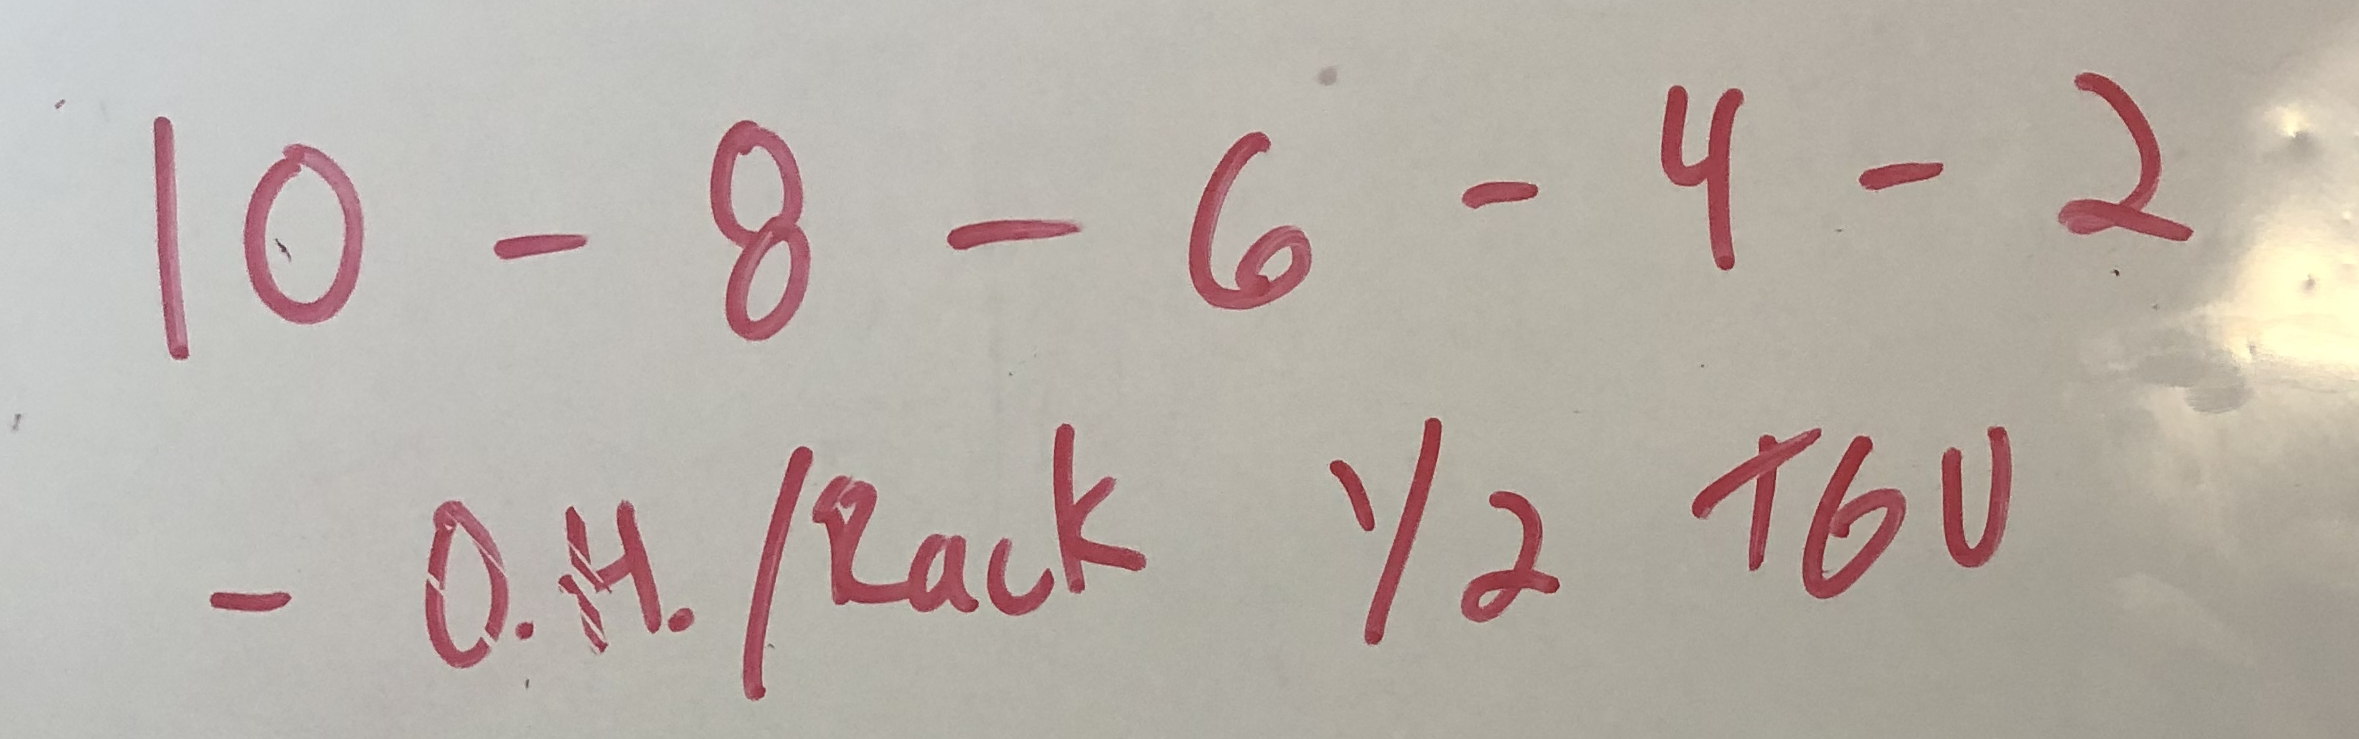 10 - 8 - 6 - 4 - 2
- O.H./Rack 1/2 TGU